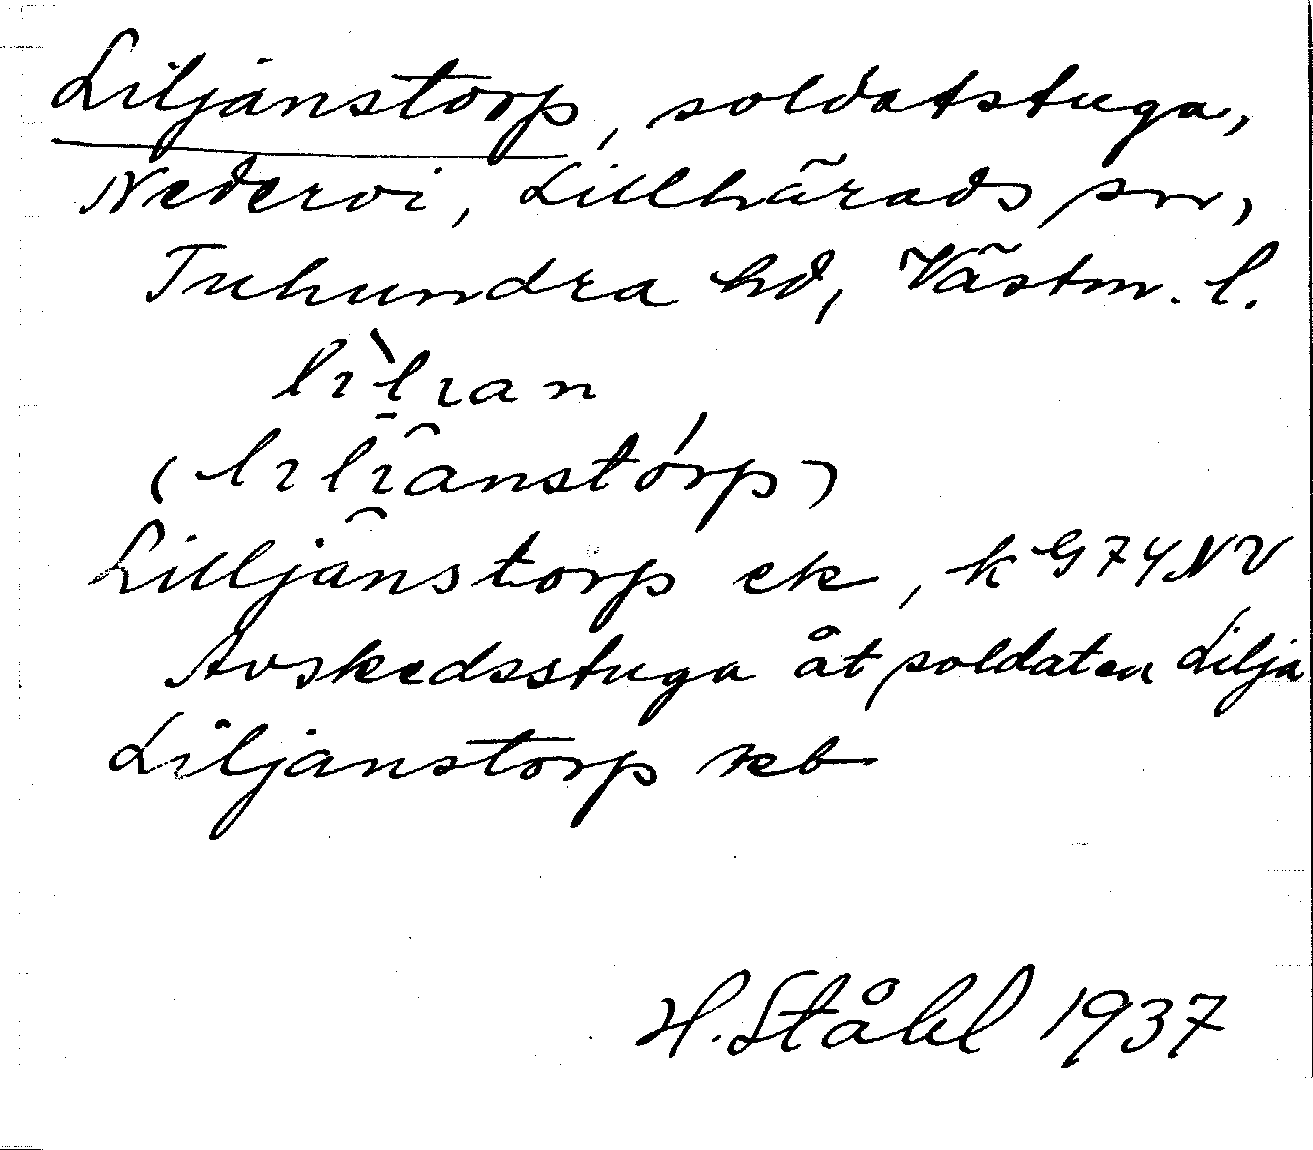 Liljanstorp, soldatstuga,
Nedervi, Lillhärads sn,
Tuhundra hd, Västm. l.
lìlɩan
(lɩlɩanstórp)
Lilljanstorp ek, k G74NV
Avskedsstuga åt soldaten Lilja
Liljanstorp kb
H. Ståhl 1937